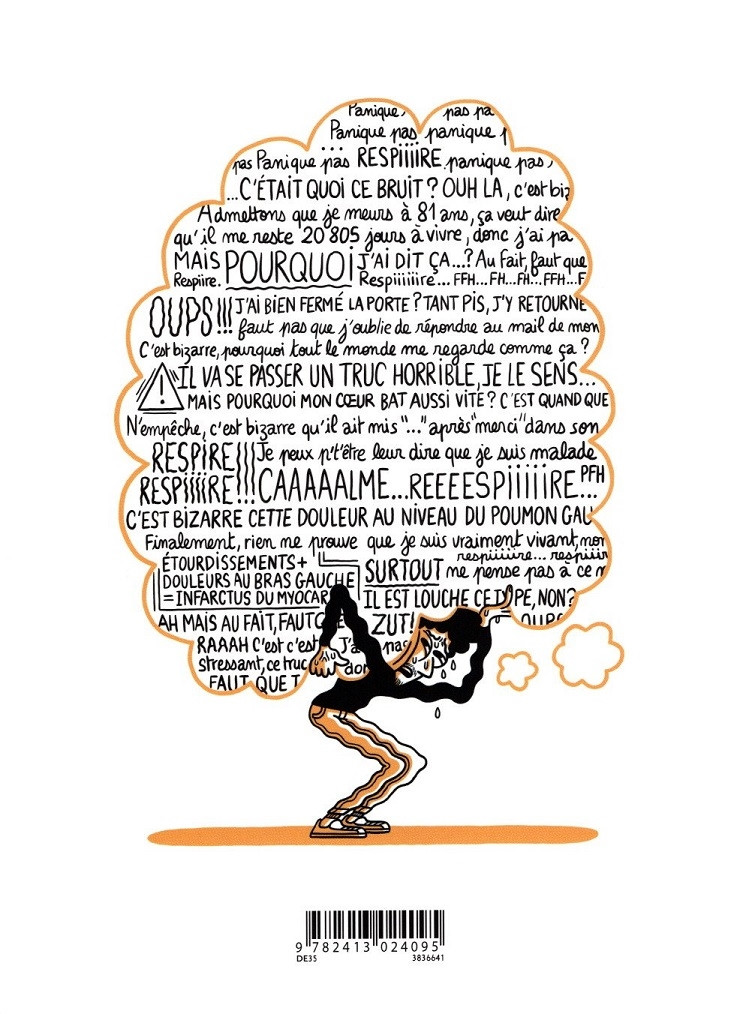 Panique, pas pa
Panique pas, panique p
pas Panique pas RESPIIIIRE panique pas,
...C'ÉTAIT QUOI CE BRUIT ? OUH LA, c'est biz
Admettons que je meurs à 81 ans, ça veut dire
qu'il me reste 20 805 jours à vivre, donc j'ai pa
MAIS POURQUOI J'AI DIT ÇA...? Au fait, faut que
Respiire. Respiiiiiire... FFH...FH...FH...FFH...F
OUPS!!! J'AI BIEN FERMÉ LA PORTE ? TANT PIS, J'Y RETOURNE
faut pas que j'oublie de répondre au mail de mon
C'est bizarre, pourquoi tout le monde me regarde comme ça ?
! IL VA SE PASSER UN TRUC HORRIBLE, JE LE SENS...
MAIS POURQUOI MON CŒUR BAT AUSSI VITE ? C'EST QUAND QUE
N'empêche, c'est bizarre qu'il ait mis "..." après "merci" dans son
RESPIRE!!! Je peux p't'être leur dire que je suis malade
RESPIIIIRE!!! CAAAAALME...REEEESPIIIIIIRE... PFH
C'EST BIZARRE CETTE DOULEUR AU NIVEAU DU POUMON GAU
Finalement, rien ne me prouve que je suis vraiment vivant, mon
respiiiiire... respiiiir
ÉTOURDISSEMENTS+
DOULEURS AU BRAS GAUCHE
= INFARCTUS DU MYOCAR
SURTOUT ne pense pas à ce m
IL EST LOUCHE CE TYPE, NON?
AH MAIS AU FAIT, FAUT ZUT! OUPS
RAAAH C'est c'est J'a pas
stressant, ce truc don
FAUT QUE T
9 782413 024095
DE35 3836641